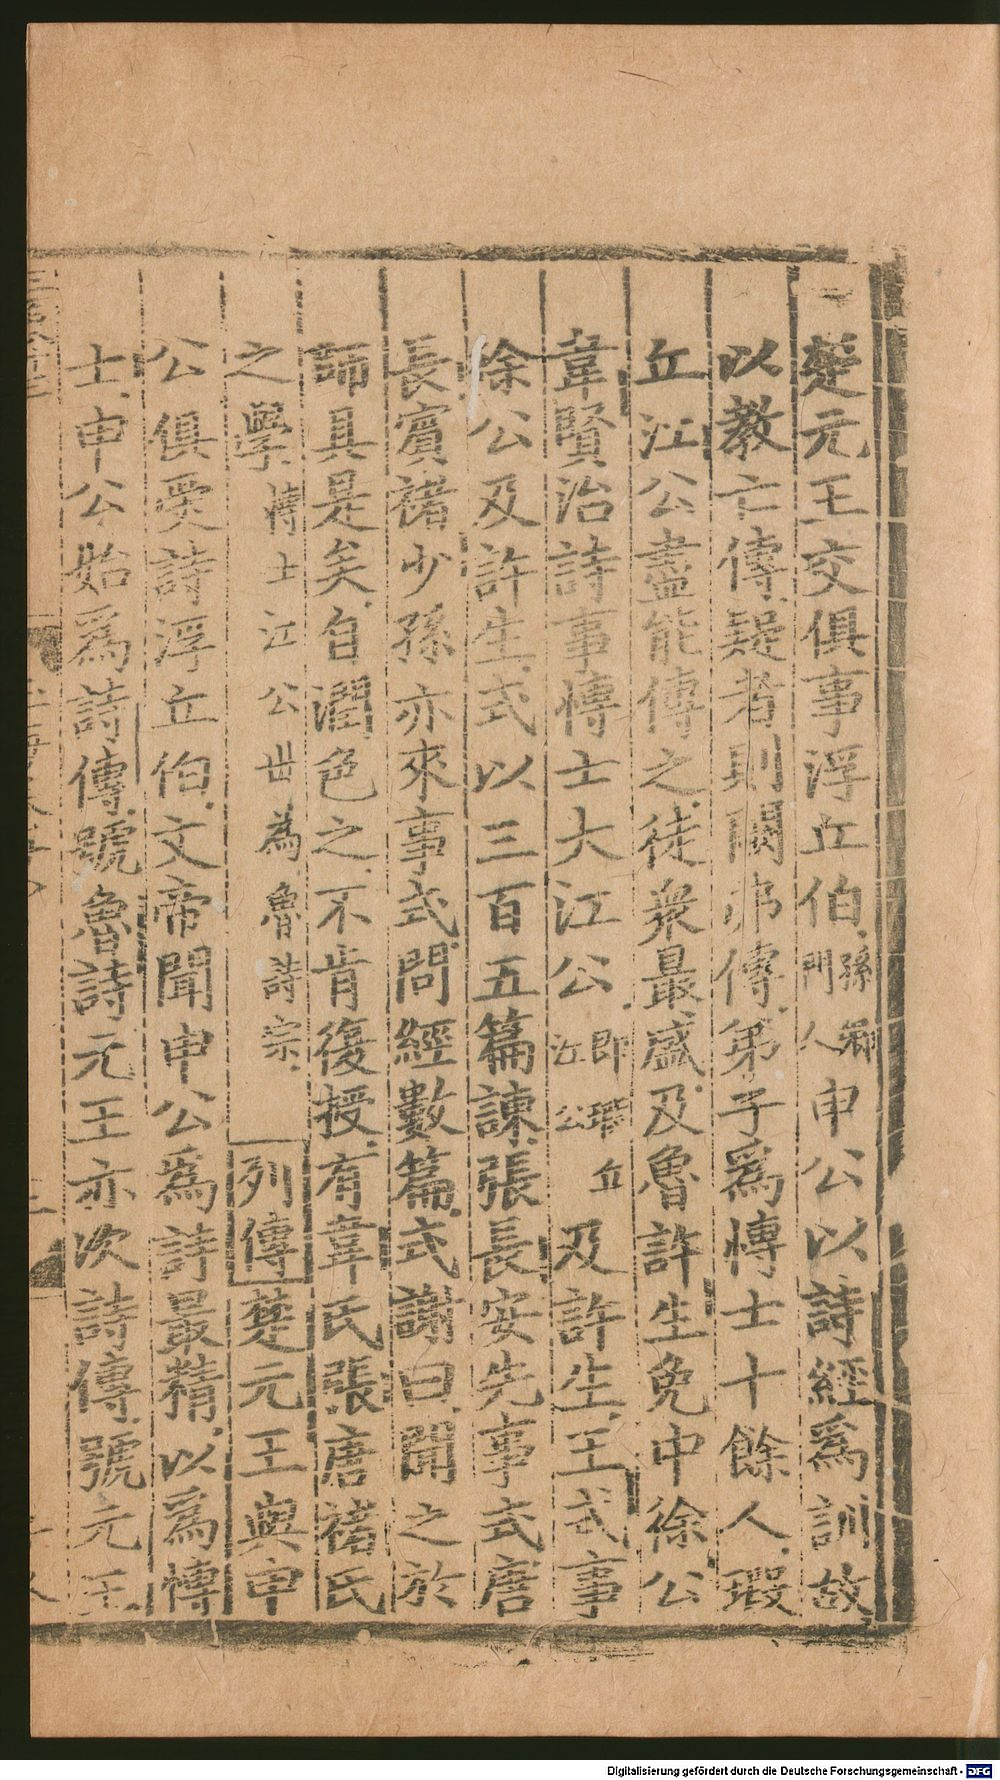 楚元王交俱事浮丘伯孫卿門人申公以詩經爲訓故
以教亡傳疑者則闕弗傳弟子爲博士十餘人瑕
丘江公盡能傳之徒衆最盛及魯許生免中徐公
韋賢治詩事博士大江公即瑕丘江公及許生王式事
徐公及許生式以三百五篇諫張長安先事式唐
長賓褚少孫亦來事式問經數篇式謝曰聞之於
師具是矣自潤色之不肯復授有韋氏張唐褚氏
之學博士江公世為魯詩宗列傳楚元王與申
公俱受詩浮丘伯文帝聞申公爲詩最精以爲博
士申公始爲詩傳號魯詩元王亦次詩傳號元王
Digitalisierung gefördert durch die Deutsche Forschungsgemeinschaft - DFG